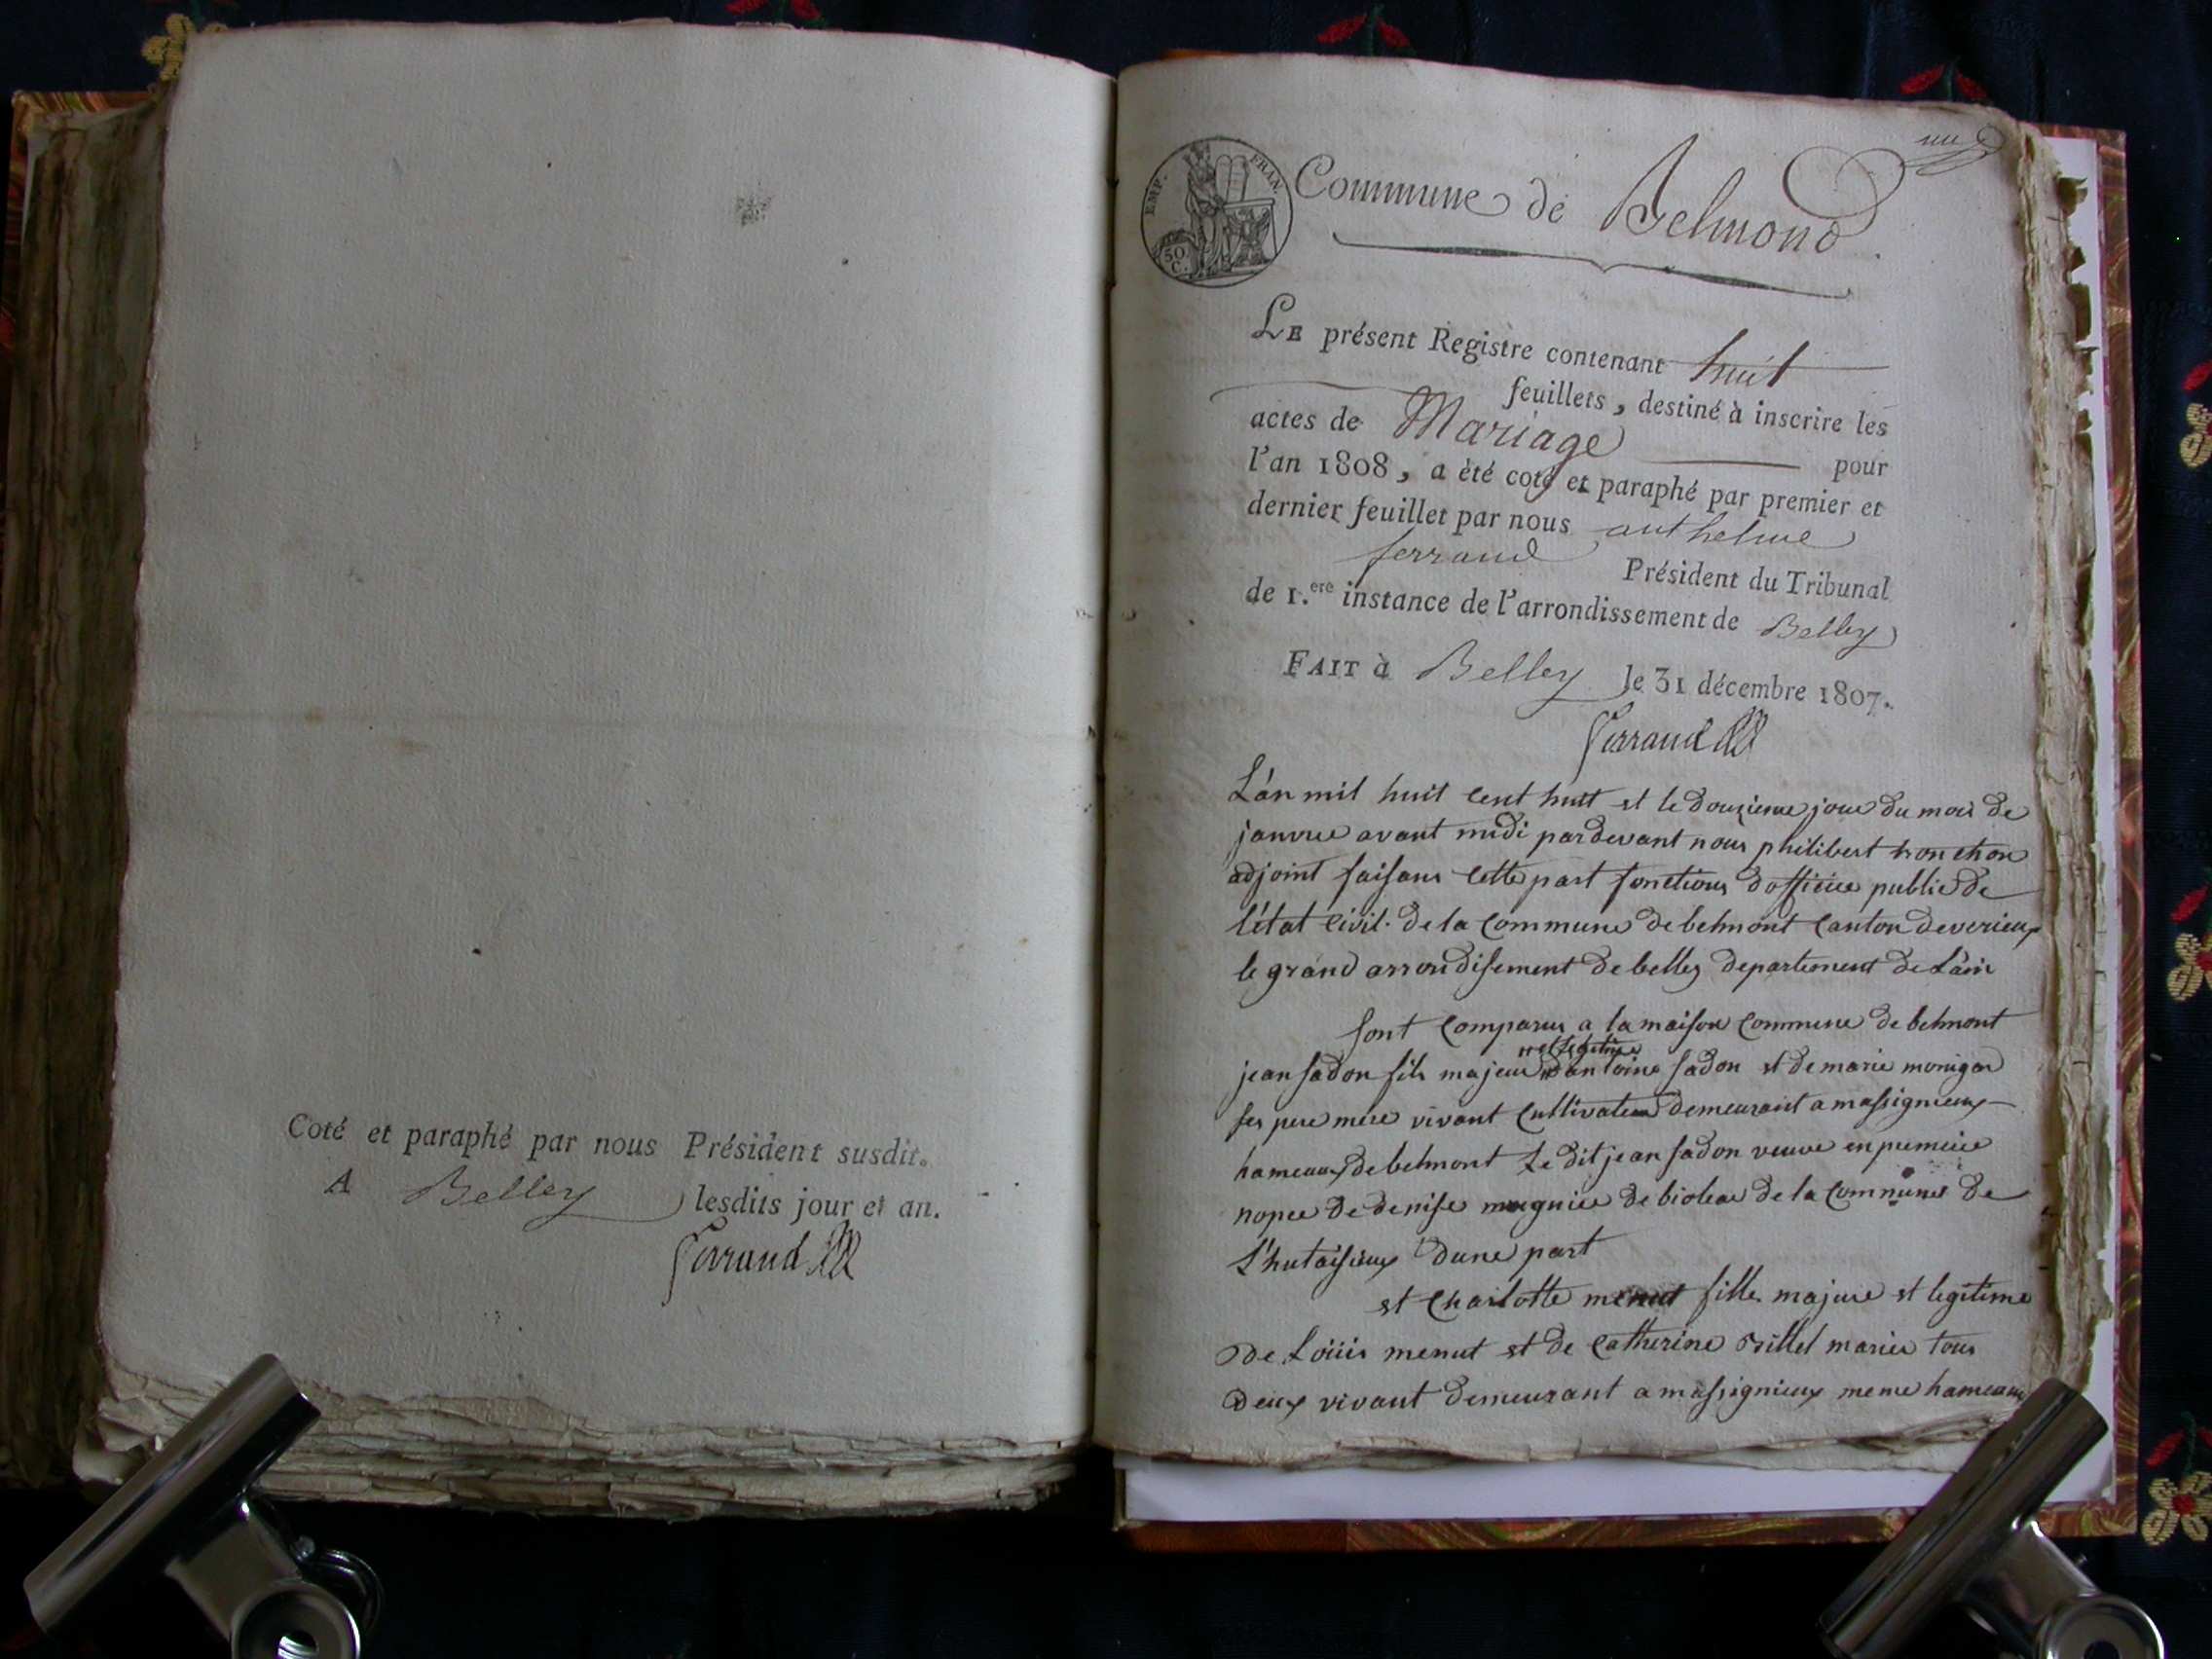 Coté et paraphé par nous Président susdit.
A Belley lesdits jour et an.
Ferrand
un
EMP. FRAN.
50
C.
Commune de Belmond.
LE présent Registre contenant huit
feuillets, destiné à inscrire les
actes de Mariage pour
l'an 1808, a été coté et paraphé par premier et
dernier feuillet par nous anthelme
ferrand Président du Tribunal
de 1.ere instance de l'arrondissement de Belley
FAIT à Belley le 31 décembre 1807.
Ferrand
L'an mil huit cent huit et le douzieme jour du mois de
janvier avant midi pardevant nous philibert
adjoint faisans cette part fonctions d'officier public de
l'état civil. de la commune de belmont canton de verieux
le grand arrondisement de belley departement de L'ain
sont comparus a la maison commune de belmont
et legitime
jean sadon fils majeur d'antoine sadon et de marie
ses pere mere vivant cultivateur demeurant a massignieux
hameaux de belmont Le dit jean sadon veuve en premiere
nopce de denise de la commune de
d'une part
et charlotte menut fille majeure et legitime
de Loüis menut et de catherine millet mariés tous
deux vivant demeurant a massignieux meme hameaux